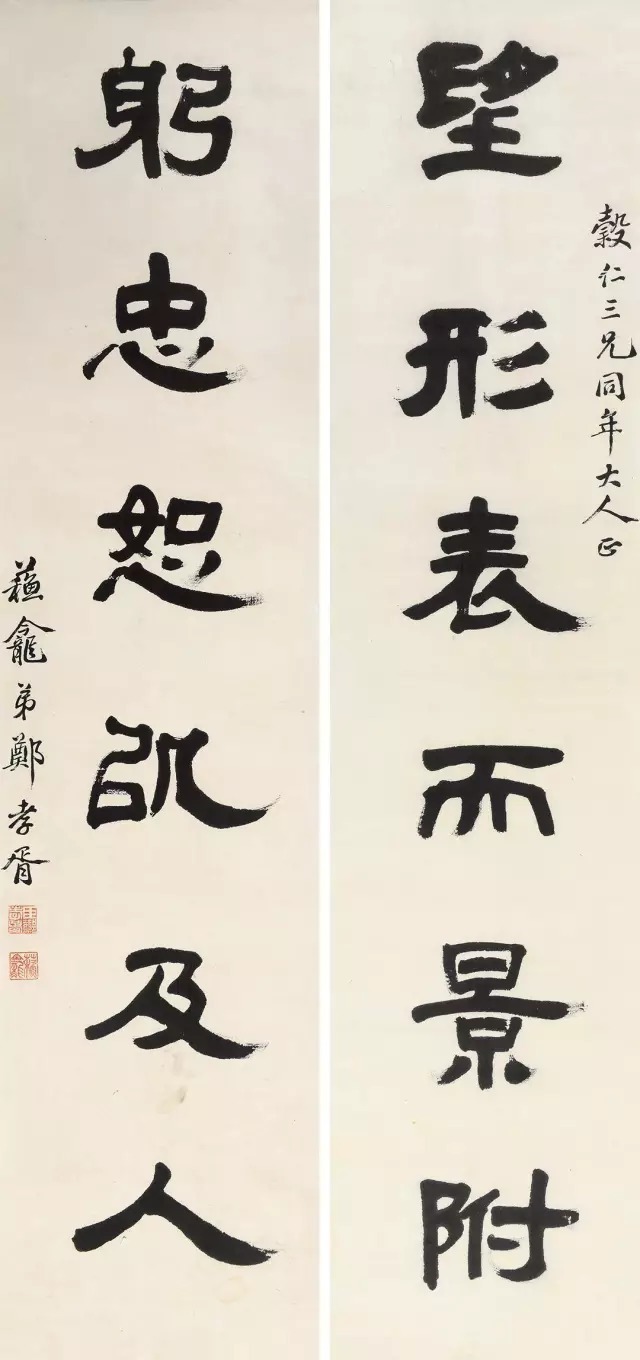 榖仁三兄同年大人正
望形表而景附
躬忠恕㠯及人
蘓龕弟鄭孝胥